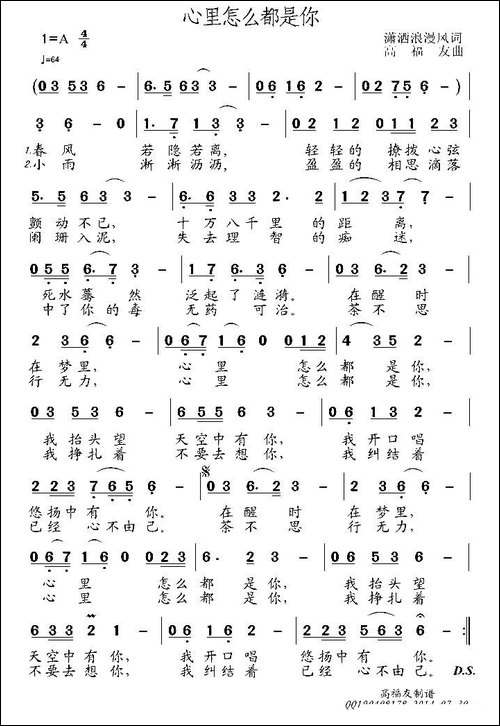 心里怎么都是你
1=A 4/4
潇洒浪漫风词
♩=64
高 福 友曲
(0 3 5 3 6 - | 6· 5 6 3 3 - | 0 2 1 2 0 5 3 5 | 6 - - -) |
3 6 - 0 | 1· 7 3 3 - | 0 1 2 2 0 1 1 2 3 |
1.春 风 若 隐 若 离, 轻 轻 的 撩 拨 心 弦
2.小 雨 淅 淅 沥 沥, 盈 盈 的 相 思 滴 落
5· 5 6 3 3 - | 6· 6 6 3 3 2· 2 | 1 2 3 7 7 - |
颤 动 不 已, 十 万 八 千 里 的 距 离,
阑 珊 入 泥, 失 去 理 智 的 痴 迷,
0 5 5 6· 7 3 - | 1 7 6· 5 6 - | 0 3 6· 2 3 - |
死 水 蓦 然 泛 起 了 涟 漪。 在 醒 时
中 了 你 的 毒 无 药 可 治。 茶 不 思
2 3 6 6 - | 0 6 7 1 6 0 0 1 2 | 4 3 5 2 - |
在 梦 里, 心 里 怎 么 都 是 你,
行 无 力, 心 里 怎 么 都 是 你,
0 3 5 3 6 - | 6· 5 6 3 3 - | 0 6 1 3 2 - |
我 抬 头 望 天 空 中 有 你, 我 开 口 唱
我 挣 扎 着 不 要 去 想 你, 我 纠 结 着
2 2 3 7 6 5 6 - | 0 3 6· 2 3 - | 2 3 6 6 - |
悠 扬 中 有 你。 在 醒 时 在 梦 里,
已 经 心 不 由 己。 茶 不 思 行 无 力,
0 6 7 1 6 0 0 2 3 | 6· 2 3 - | 0 3 5 3 6 - |
心 里 怎 么 都 是 你, 我 抬 头 望
心 里 怎 么 都 是 你, 我 挣 扎 着
6 3 3 2 2 1 - | 0 6 1 6 3 - | 2 2 3 5 6 6 - :||
天 空 中 有 你, 我 开 口 唱 悠 扬 中 有 你。
不 要 去 想 你, 我 纠 结 着 已 经 心 不 由 己。 D.S.
高福友制谱